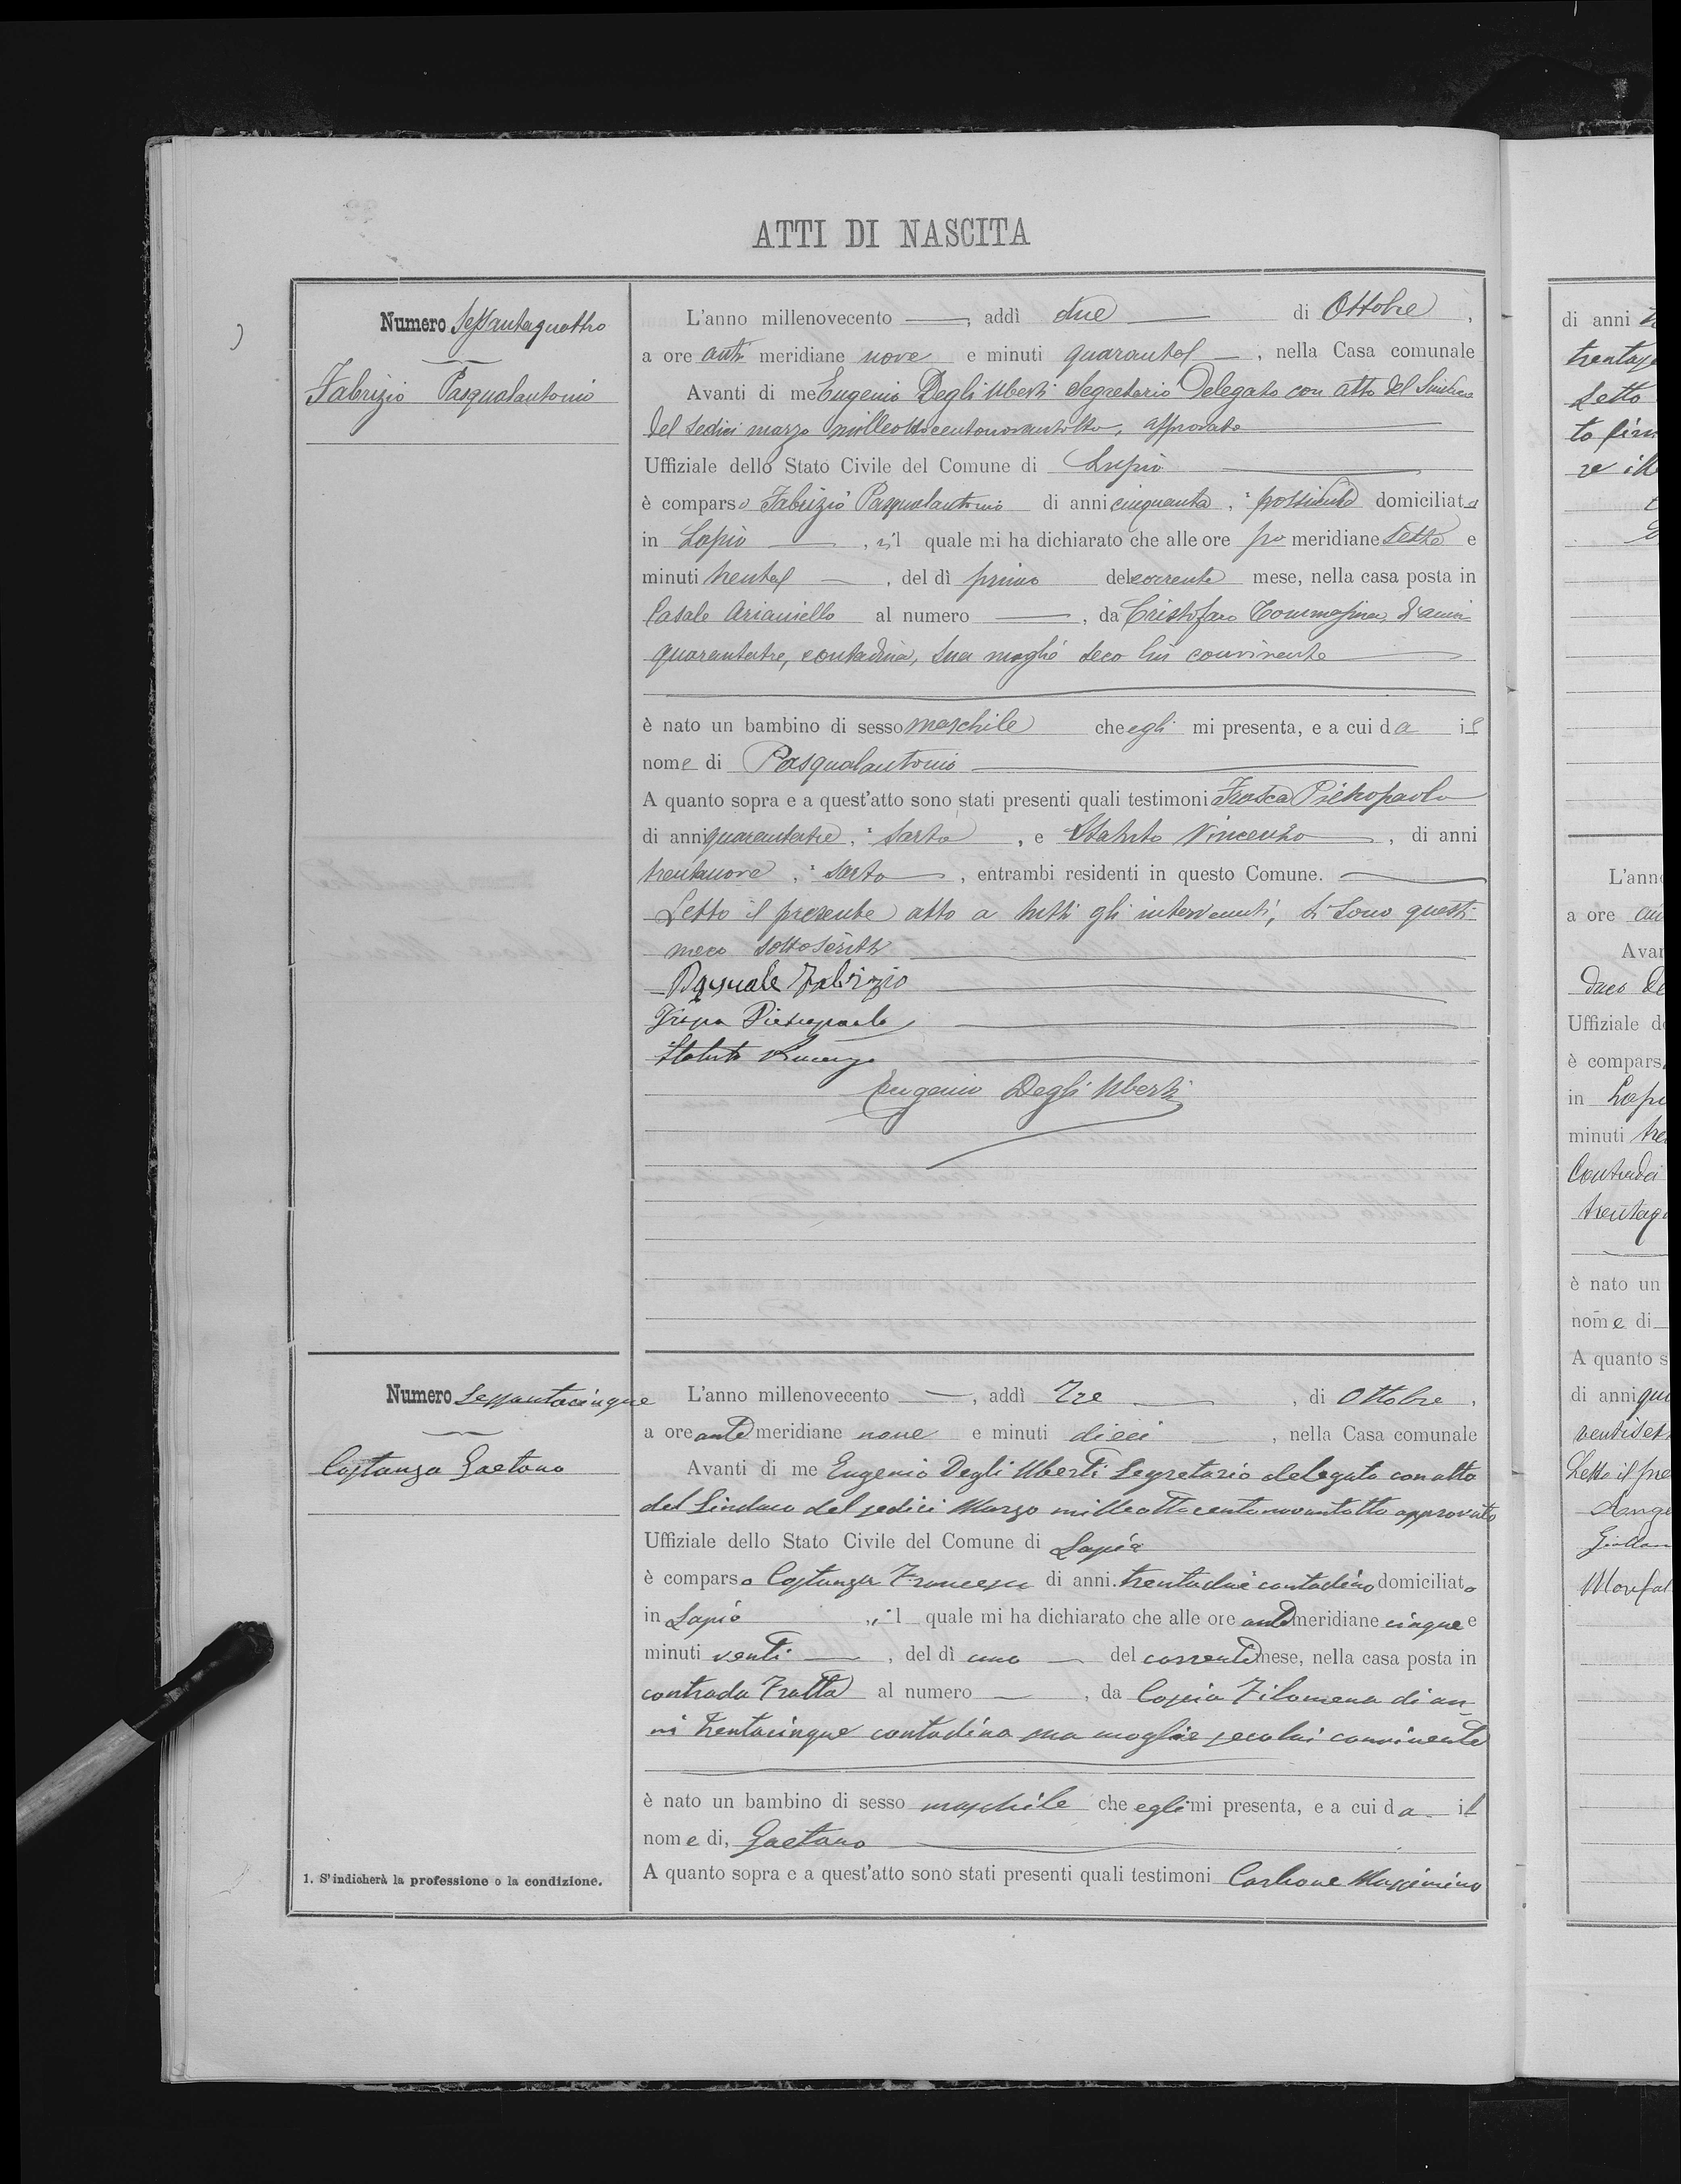 ATTI DI NASCITA
Numero Sessantaquattro
Fabrizio Pasqualantonio
L'anno millenovecento —, addì due — di Ottobre,
a ore anti meridiane nove e minuti quaranta —, nella Casa comunale
Avanti di me Eugenio Degli Uberti Segretario Delegato con atto del Sindaco
del sedici marzo milleottocentonovantotto, approvato
Uffiziale dello Stato Civile del Comune di Lapio
è comparso Fabrizio Pasqualantonio di anni cinquanta, possidente domiciliato
in Lapio —, il quale mi ha dichiarato che alle ore po meridiane sette e
minuti trenta —, del dì primo del corrente mese, nella casa posta in
Casale Arianiello al numero —, da Cristofaro Tommasina, d'anni
quarantatre, contadina, sua moglie seco lui convivente
è nato un bambino di sesso maschile che egli mi presenta, e a cui da il
nome di Pasqualantonio
A quanto sopra e a quest'atto sono stati presenti quali testimoni Pietropaolo
di anni quarantatre, sarto, e Statuto Vincenzo —, di anni
trentanove, sarto —, entrambi residenti in questo Comune.
Letto il presente atto a tutti gli intervenuti, si sono questi
meco sottoscritti
Pasquale Fabrizio
Pietropaolo
Statuto Vincenzo
Eugenio Degli Uberti
Numero Sessantacinque
Costanza Gaetano
L'anno millenovecento —, addì Tre —, di Ottobre,
a ore ante meridiane nove e minuti dieci —, nella Casa comunale
Avanti di me Eugenio Degli Uberti Segretario delegato con atto
del Sindaco del sedici Marzo milleottocentonovantotto approvato
Uffiziale dello Stato Civile del Comune di Lapio
è comparso Costanza Francesco di anni trentadue contadino domiciliato
in Lapio, il quale mi ha dichiarato che alle ore ante meridiane cinque e
minuti venti —, del dì uno — del corrente mese, nella casa posta in
contrada Fratta al numero —, da Coscia Filomena di an-
ni trentacinque contadina sua moglie seco lui convivente
è nato un bambino di sesso maschile che egli mi presenta, e a cui da il
nome di, Gaetano
A quanto sopra e a quest'atto sono stati presenti quali testimoni Carbone Massimino
1. S'indicherà la professione o la condizione.
di anni
Letto
L'ann
a ore
Avan
Uffiziale d
è compars
in Lapi
minuti tre
Contrada
è nato un
nome di
A quanto s
di anni qua
ventiset
Letto il pre
Ange